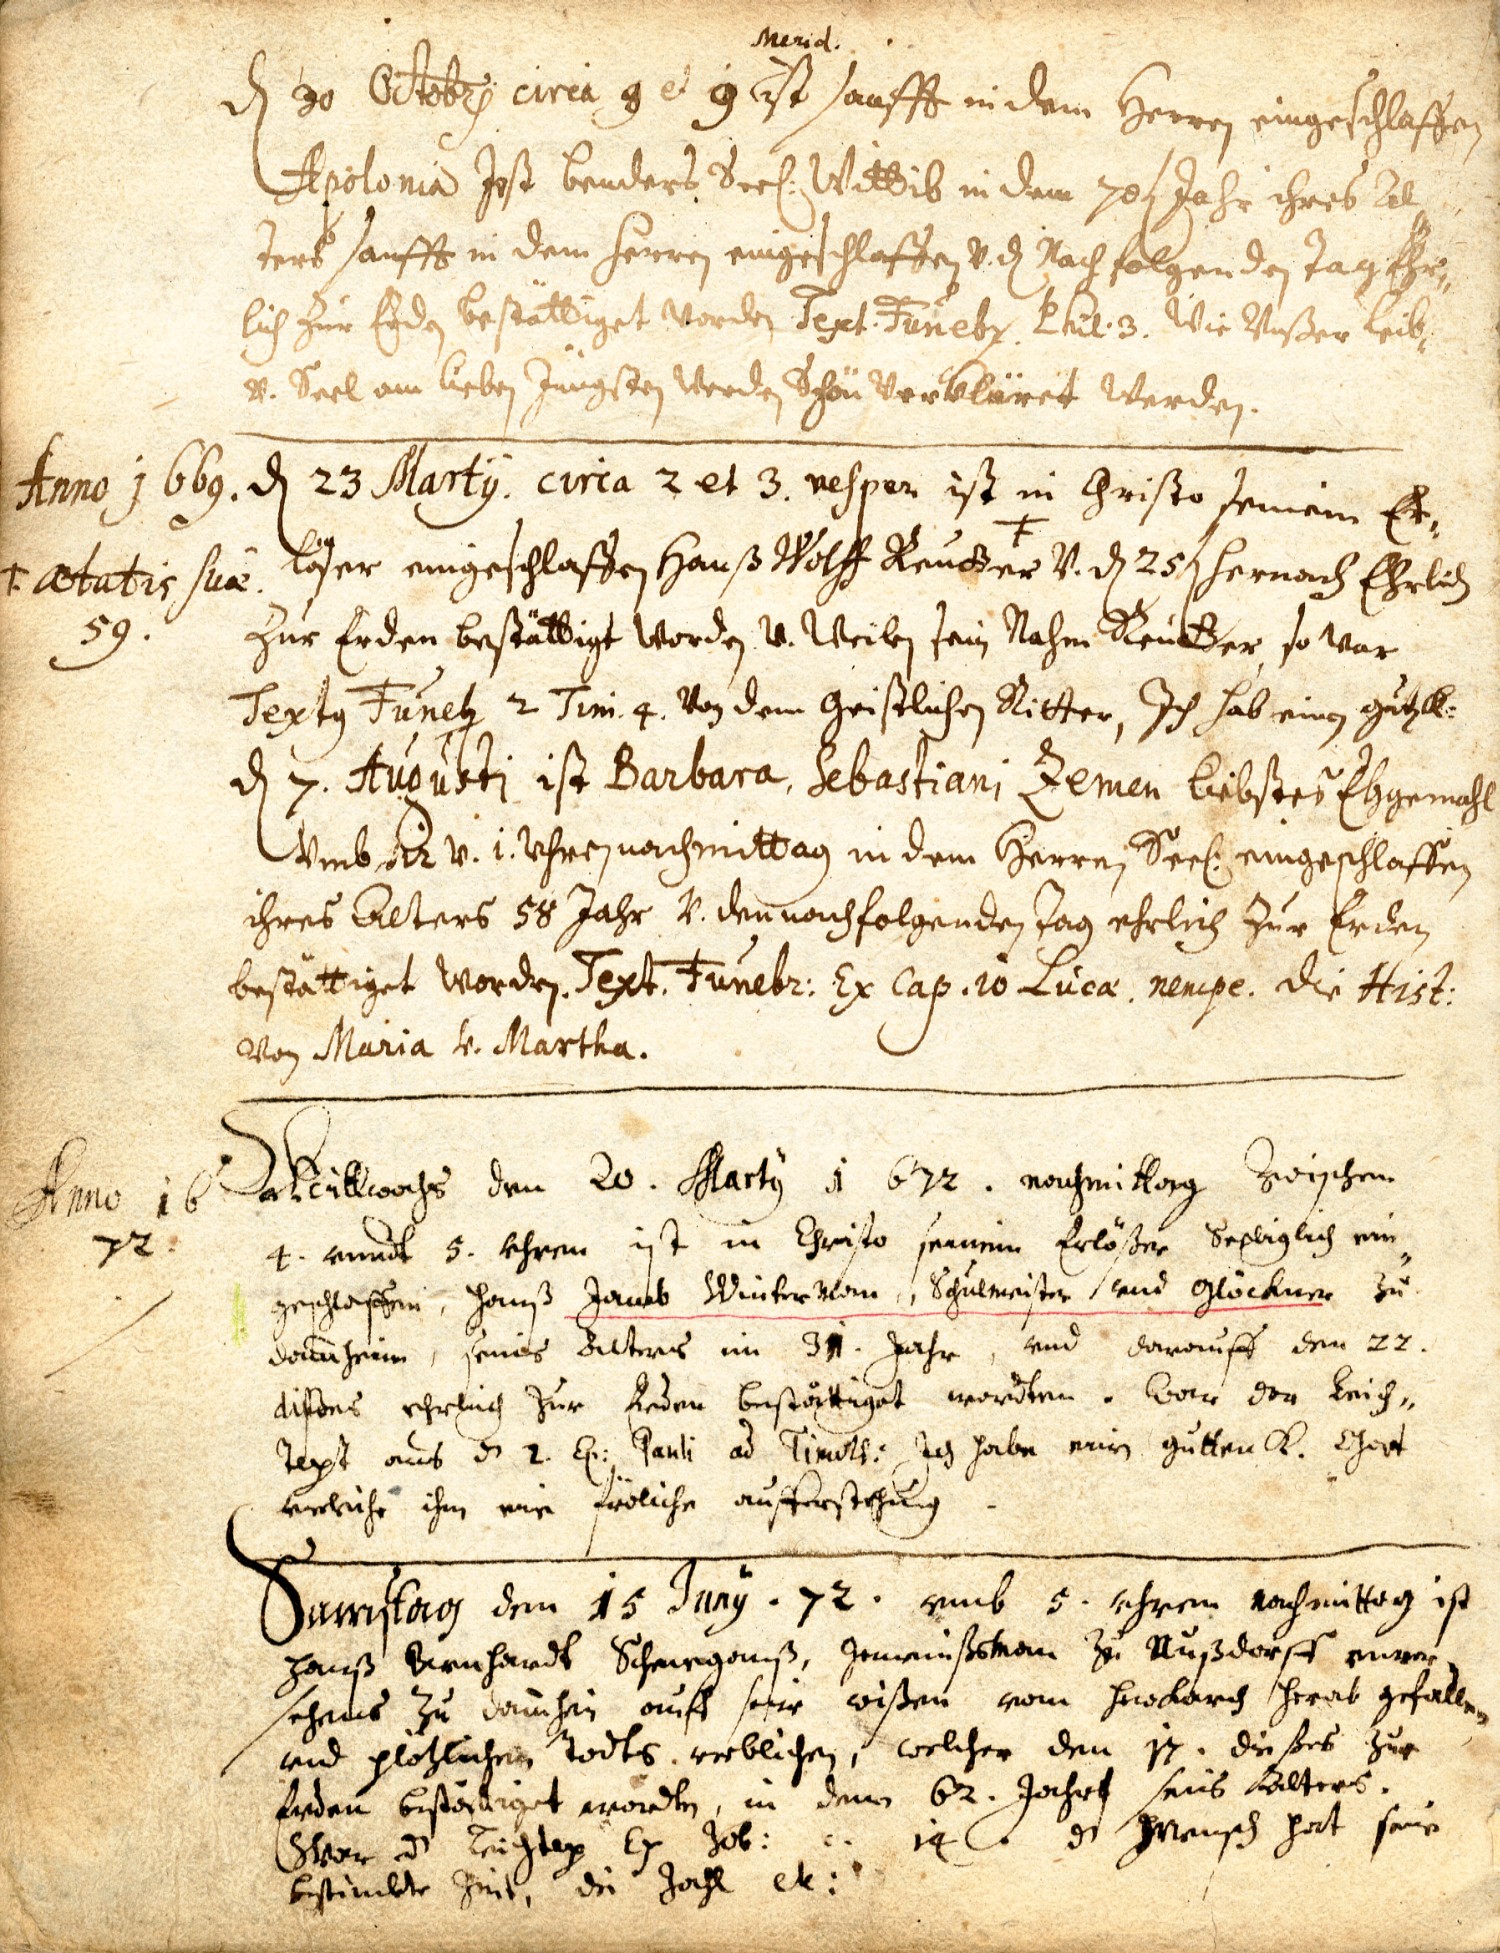 Merid.
dñ 30 Octobrj circa 9 et 9 ist sanfft in dem Herren eingeschlaffen
Apolonia Jost benders Seel: Wittib in dem 70 Jahr ihres Al„
ters sanfft in dem Herren eingeschlaffen v. dñ Nachfolgenden Tag Ehr„
lich zur Erden bestättiget worden Text. Funebr. Phil. 3. Wie Vnßer Leib„
v. Seel am lieben Jüngsten werden Schön Verkläret werden.
Anno 1669. dñ 23 Martij. circa 2 et 3. vesper ist in Christo seinem Er„
† ætatis suæ. löser eingeschlaffen Hanß Wolff Reutter † v. dñ 25 hernach Ehrlich
59. Zur Erden bestättigt worden v. weilen sein Nahm Reutter, so war
Textg Funeb 2 Tim. 4. Von dem Geistlichen Ritter, Ich hab einen gut
dñ 7. Augusti ist Barbara, Sebastiani Zemen liebstes Ehgemahl
Vmb 12 v. 1. Vhren nachmittag in dem Herren Seel: eingeschlaffen
ihres Alters 58 Jahr v. den nachfolgenden Tag ehrlich zur Erden
bestättiget worden. Text. Funebr: Ex Cap. 10 Lucæ. nempe. die Hist:
von Maria v. Martha.
Anno 16 Mittwochs den 20. Martij 1672. nachmittag zwischen
72. 4. vnndt 5. vhren ist in Christo seinem Erlößer Seeliglich ein„
geschlaffen, Hanß Jacob Winterman, Schulmeister vnd Glöckner zu
dam̄heim, seines Alters im 31. Jahr, vnd darauff den 22.
dißes ehrlich zur Erden bestättiget wordten. War der Leich„
Text aus d 2. Ep: Pauli ad Timoth: Ich habe einen gutten K. Gott
verleihe ihm eine fröliche aufferstehung
Samstag den 15 Junij. 72. vmb 5. vhren nachmittag ist
Hanß Bernhardt Gemeinßman zu Nußdorff vnver„
sehens zu dam̄hein auff vom herab gefallen
vnd plötzlichen Todts verblichen, welcher den 17. dießes zur
Erden bestättiget wordten, in dem 62. Jahre seins Alters.
War d Leichtext Ex Job: c. 14. d Mensch hat seine
bestimbte Zeit, die Zahl etc: